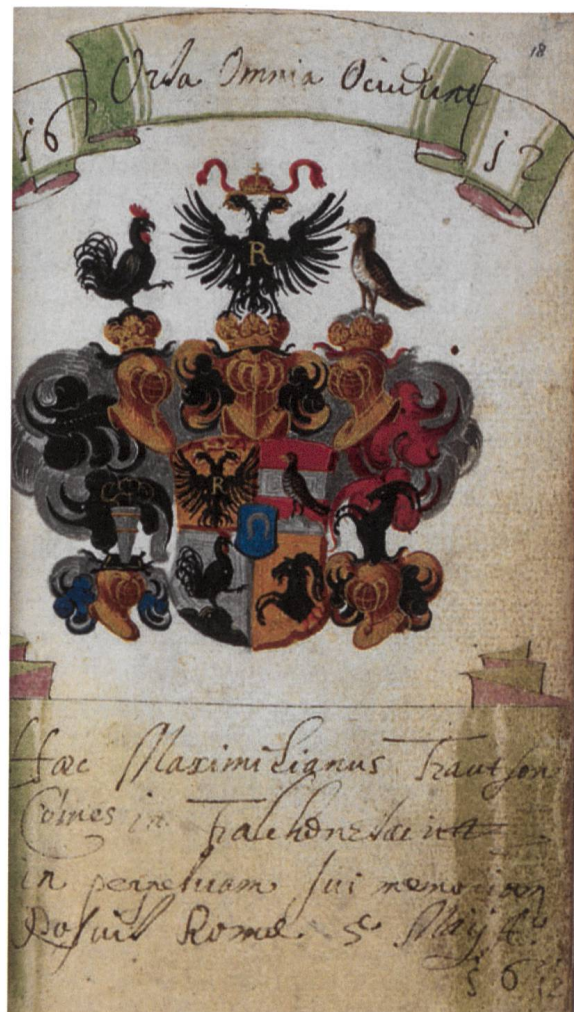 18
Orta Omnia Occidunt
16 12
R
R
Hæc Maximilianus Trautson
Comes in
in perpetuam sui memoriam
Posuit Romæ 5 Maij Aº
1612